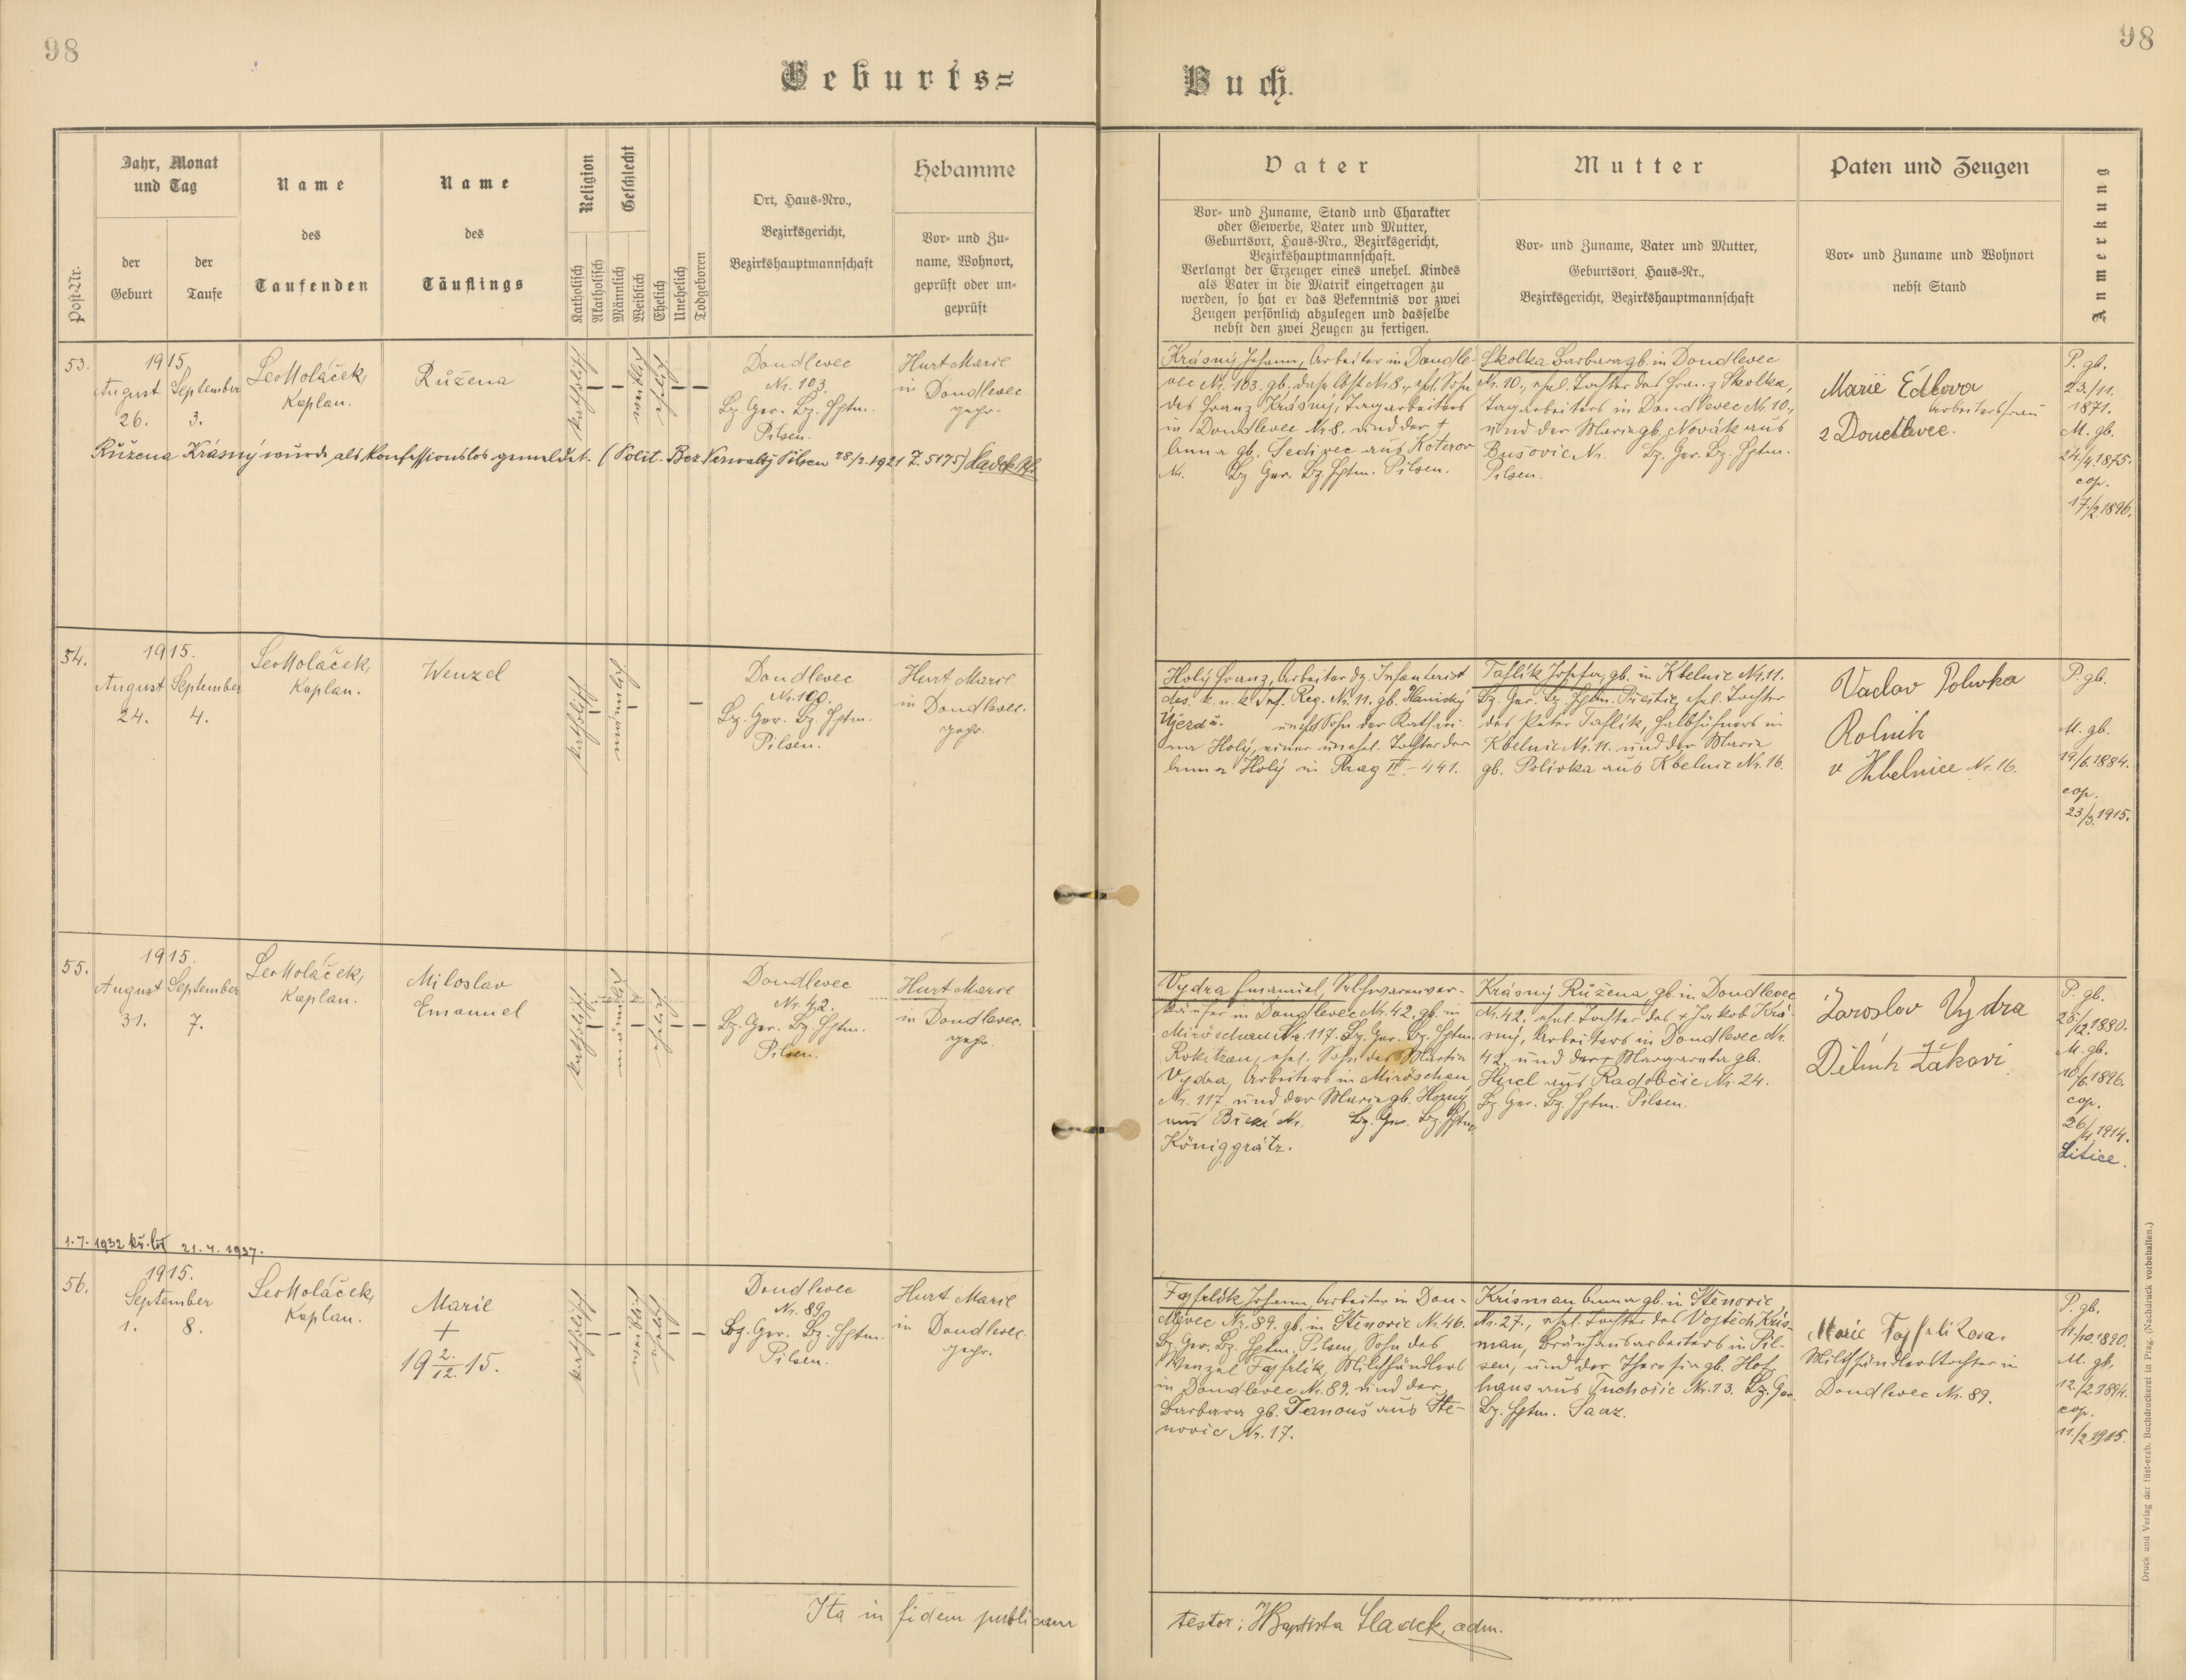 98
98
Geburts=
Buch.
Post-Nr.
Jahr, Monat
und Tag
der
Geburt
der
Taufe
Name
des
Taufenden
Name
des
Täuflings
Religion
Katholisch
Akatholisch
Geschlecht
Männlich
Weiblich
Ehelich
Unehelich
Todgeboren
Ort, Haus=Nro.,
Bezirksgericht,
Bezirkshauptmannschaft
Hebamme
Vor= und Zu=
name, Wohnort,
geprüft oder un=
geprüft
Vater
Vor= und Zuname, Stand und Charakter
oder Gewerbe, Vater und Mutter,
Geburtsort, Haus=Nro., Bezirksgericht,
Bezirkshauptmannschaft.
Verlangt der Erzeuger eines unehel. Kindes
als Vater in die Matrik eingetragen zu
werden, so hat er das Bekenntnis vor zwei
Zeugen persönlich abzulegen und dasselbe
nebst den zwei Zeugen zu fertigen.
Mutter
Vor= und Zuname, Vater und Mutter,
Geburtsort, Haus=Nr.,
Bezirksgericht, Bezirkshauptmannschaft
Paten und Zeugen
Vor= und Zuname und Wohnort
nebst Stand
Anmerkung
53.
1915
August September
26. 3.
Leo Holáček,
Kaplan.
Růžena
katholisch
weiblich
ehelich
Doudlevec
Nr. 103.
Bz. Ger. Bz. Hptm.
Pilsen.
Hurt Marie
in Doudlevec
gepr.
Růžena Krásný wurde als konfessionslos gemeldet. (Polit. Bez. Verwaltg Pilsen 28/2.1921 Z. 5175) Sladek
Krásný Johann, Arbeiter in Doudle-
vec Nr. 103. gb. daselbst Nr. 8., ehel. Sohn
des Franz Krásný, Tagarbeiters
in Doudlevec Nr. 8. und der †
Anna gb. Šedivec aus Koterov
Nr. Bz. Ger. Bz. Hptm. Pilsen.
Skolka Barbara gb. in Doudlevec
Nr. 10., ehel. Tochter des Franz Skolka,
Tagarbeiters in Doudlevec Nr. 10.,
und der Marie gb. Novák aus
Bušovic Nr. Bz. Ger. Bz. Hptm.
Pilsen.
Marie Edlova
Arbeitersfrau
z Doudlevec.
P. gb.
23./11.
1871.
M. gb.
24./4.1875.
cop.
17./2.1896.
54.
1915.
August September
24. 4.
Leo Holáček,
Kaplan.
Wenzel
katholisch
männlich
Doudlevec
Nr. 100.
Bz. Ger. Bz. Hptm.
Pilsen.
Hurt Marie
in Doudlevec.
gepr.
Holý Franz, Arbeiter dz. Infanterist
des k. u. k. Inf. Reg. Nr. 11. gb.
unehel. Sohn der Kathari-
na Holý, einer unehel. Tochter der
Anna Holý in Prag II. - 441.
Taflík Josefa, gb. in Kbelnic Nr. 11.
Bz. Ger. Bz. Hptm. Přestic, ehel. Tochter
des Peter Taflík, Halbhüfners in
Kbelnic Nr. 11. und der Marie
gb. Polivka aus Kbelnic Nr. 16.
Vaclav Polivka
Rolnik
v Kbelnice Nr. 16.
P. gb.
M. gb.
19./6.1884.
cop.
23./3.1915.
55.
1915.
August September
31. 7.
Leo Holáček,
Kaplan.
Miloslav
Emanuel
katholisch
männlich
ehelich
Doudlevec
Nr. 42.
Bz. Ger. Bz. Hptm.
Pilsen.
Hurt Marie
in Doudlevec.
gepr.
Vydra Emanuel, Selchwarenver-
käufer in Doudlevec Nr. 42. gb. in
Miröschau Nr. 117. Bz. Ger. Bz. Hptm.
Rokitzan, ehel. Sohn des Martin
Vydra, Arbeiters in Miröschau
Nr. 117. und der Marie gb. Horný
aus Nr. Bz. Ger. Bz. Hptm.
Königgrätz.
Krásný Růžena, gb. in Doudlevec
Nr. 42., ehel. Tochter des † Jakob Krá-
sný, Arbeiters in Doudlevec Nr.
42. und der † Margareta gb.
Hucl aus Radobčic Nr. 24.
Bz. Ger. Bz. Hptm. Pilsen.
Jaroslav Vydra
Dělník Žákovi
P. gb.
25./12.1880.
M. gb.
10./6.1896.
cop.
26./4.1914.
Litice.
1.7.1932 21.4.1937.
56.
1915.
September
1. 8.
Leo Holáček,
Kaplan.
Marie
+
19 2./12. 15.
katholisch
weiblich
ehelich
Doudlevec
Nr. 89.
Bz. Ger. Bz. Hptm.
Pilsen.
Hurt Marie
in Doudlevec.
gepr.
Fajfrlík Johann, Arbeiter in Dou-
dlevec Nr. 89. gb. in Štěnovic Nr. 46.
Bz. Ger. Bz. Hptm. Pilsen, Sohn des
Wenzel Fajfrlík, Milchhändlers
in Doudlevec Nr. 89. und der
Barbara gb. Janouš aus Ště-
novic Nr. 17.
Krisman Anna gb. in Štěnovic
Nr. 27., ehel. Tochter des Vojtěch Kris-
man, Bräuhausarbeiters in Pil-
sen, und der Theresia gb. Hof-
hans aus Tuchořic Nr. 13. Bz. Ger.
Bz. Hptm. Saaz.
Marie Fajfrlikova.
Milchhändlerstochter in
Doudlevec Nr. 89.
P. gb.
11./10.1890.
M. gb.
12./2.1894.
cop.
11./2.1915.
Ita in fidem publicam
testor: J Baptista Sladek, adm.
Druck und Verlag der füst-erzb. Buchdruckerei in Prag. (Nachdruck vorbehalten.)